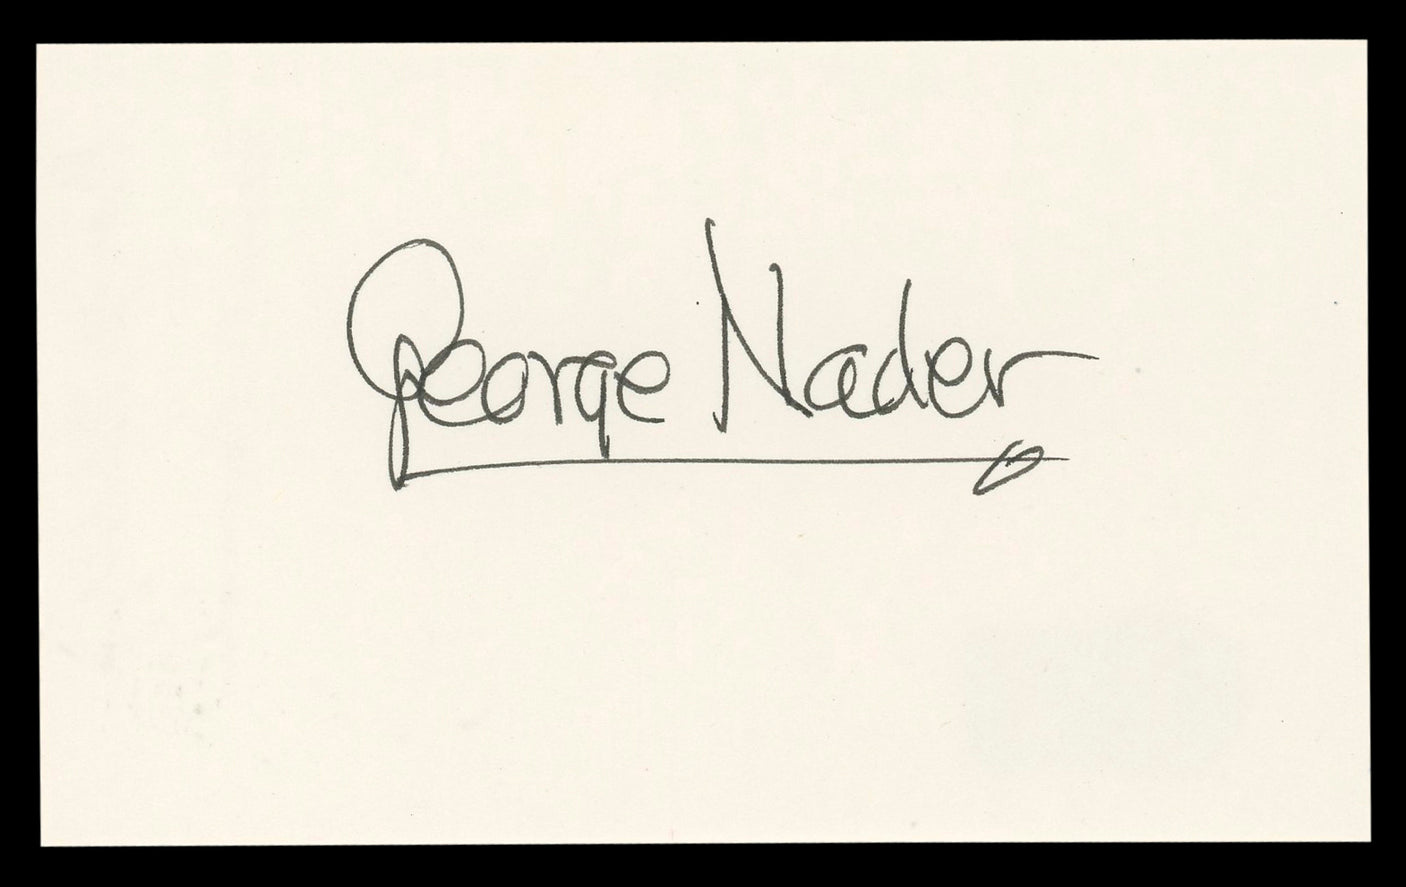 George Nader